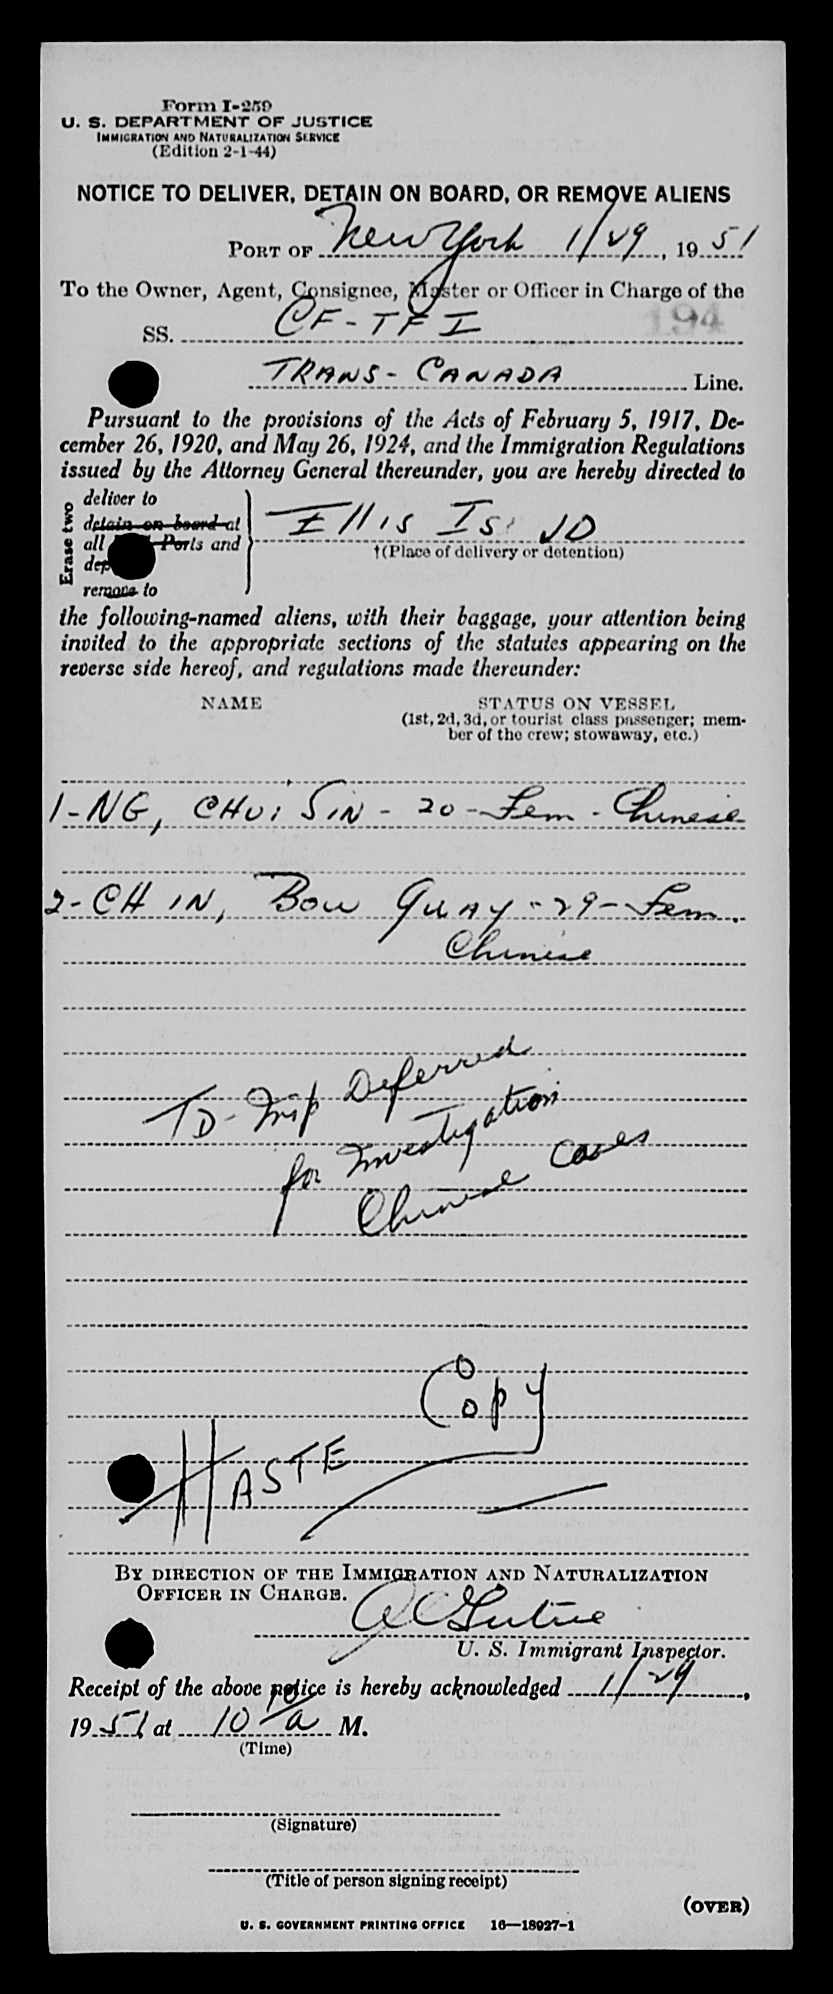 Form I-259
U. S. DEPARTMENT OF JUSTICE
IMMIGRATION AND NATURALIZATION SERVICE
(Edition 2-1-44)
NOTICE TO DELIVER, DETAIN ON BOARD, OR REMOVE ALIENS
PORT OF New York 1/29, 1951
To the Owner, Agent, Consignee, Master or Officer in Charge of the
SS. CF-TFI 194
TRANS-CANADA Line.
Pursuant to the provisions of the Acts of February 5, 1917, De-
cember 26, 1920, and May 26, 1924, and the Immigration Regulations
issued by the Attorney General thereunder, you are hereby directed to
Erase two
deliver to
detain on board at
all Ports and
remove to
Ellis Is.
†(Place of delivery or detention)
the following-named aliens, with their baggage, your attention being
invited to the appropriate sections of the statutes appearing on the
reverse side hereof, and regulations made thereunder:
NAME STATUS ON VESSEL
(1st, 2d, 3d, or tourist class passenger; mem-
ber of the crew; stowaway, etc.)
1-NG, CHUI SIN - 20 - Fem - Chinese
2-CHIN, Bow Quay - 29 - Fem.
Chinese
TD - Insp Deferred
for Investigation
Chinese Cases
Copy
HASTE
BY DIRECTION OF THE IMMIGRATION AND NATURALIZATION
OFFICER IN CHARGE.
U. S. Immigrant Inspector.
Receipt of the above notice is hereby acknowledged 1/29,
1951 at 10 a M.
(Time)
(Signature)
(Title of person signing receipt)
(OVER)
U. S. GOVERNMENT PRINTING OFFICE 16—18927-1